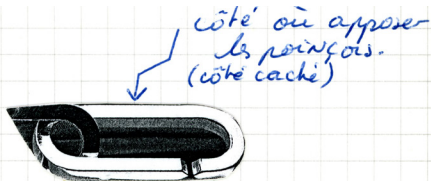 côté où apposer
les poinçons.
(côté caché)